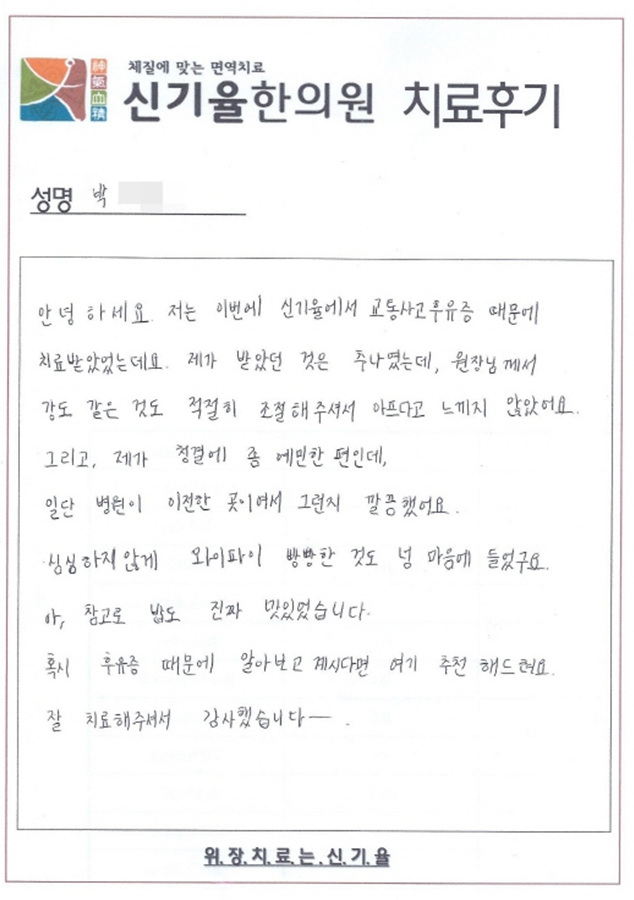 체질에 맞는 면역치료
神氣血精
신기율한의원 치료후기
성명 박
안녕 하세요. 저는 이번에 신기율에서 교통사고후유증 때문에
치료받았었는데요. 제가 받았던 것은 추나였는데, 원장님께서
강도 같은 것도 적절히 조절해주셔서 아프다고 느끼지 않았어요.
그리고, 제가 청결에 좀 예민한 편인데,
일단 병원이 이전한 곳이여서 그런지 깔끔했어요.
심심하지않게 와이파이 빵빵한 것도 넘 마음에 들었구요.
아, 참고로 밥도 진짜 맛있었습니다.
혹시 후유증 때문에 알아보고 계시다면 여기 추천 해드려요.
잘 치료해주셔서 감사했습니다ㅡ.
위.장.치.료.는.신.기.율